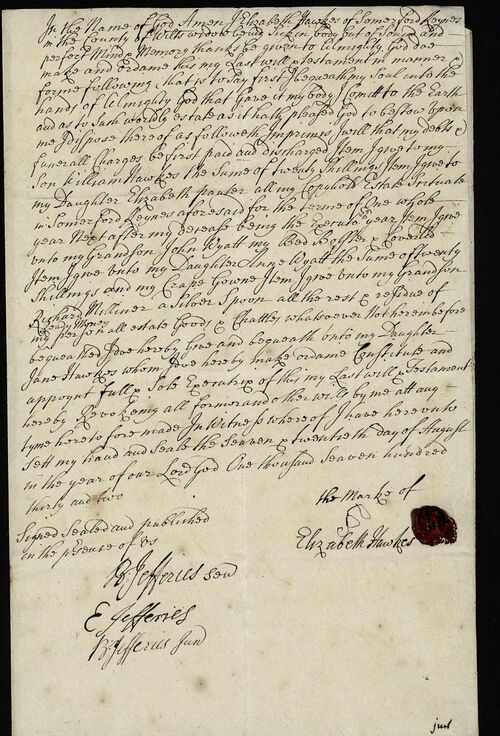 In the Name of God Amen I Elizabeth Hawkes of Somerford Keynes
in the County of Wilts widdow being Sick in body but of Sound and
perfect Mind & Memory thanks be given to Almighty God doe
make and ordame this my Last will & testament in manner &
forme following that is to Say first I bequeath my Soul into the
hands of Almighty God that Gave it my body I comitt to the Earth
and as to Such worldly estate as it hath pleased God to bestow upon
me I dispose thereof as followeth Imprimis I will that my debts &
funerall Charges be first paid and discharged Item I give to my
Son William Hawkes the Sume of twenty Shillings Item I give to
my Daughter Elizabeth all my Copyhold Estate Scituate
in Somerford Keynes aforesaid for the terme of One whole
year Next after my decease being the Executrs year Item I give
unto my Grandson John Wyatt my Bed Boulster & Coverlid
Item I give unto my Daughter Anne Wyatt the Sume of twenty
Shillings and my Crape Gowne Item I give unto my Grandson
Richard Milliner a Silver Spoon all the rest & residue of
Ready Money
my personall estate Goods & Chattles whatsoever Not herembefore
bequeathed I doe hereby Give and bequeath unto my Daughter
Jane Hawkes whom I doe hereby make ordame Constitute and
appoynt full & Sole Executrix of this my Last will & Testament
hereby Revokemg all former and other wills by me att any
tyme heretofore made In witness whereof I have hereunto
Sett my hand and Seale the Seaven & twentieth day of August
in the year of our Lord God One thousand Seaven hundred
thirty and two
the Marke of
Elizabeth Hawkes
Signed Sealed and published
in the presence of us
R: Jefferies Sen
E Jefferies
R: Jefferies Jund